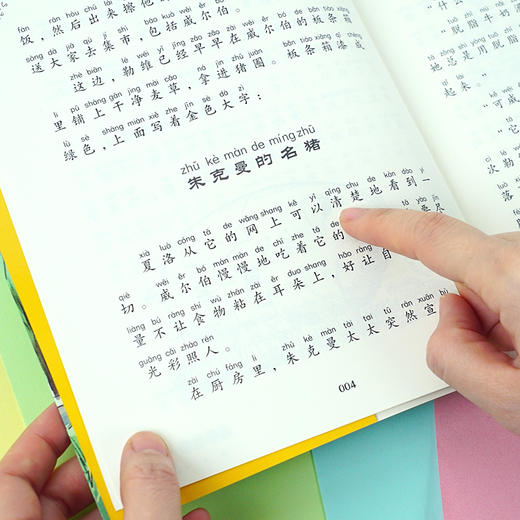 fàn rán hòu chū lái zhū
饭，然后出来
sòng dà jiā qù jí shì bāo kuò wēi ěr bó
送大家去集市，包括威尔伯。
zhè biān lè wéi yǐ jīng zǎo zǎo zài wēi ěr bó de bǎn tiáo xiāng
这边，勒维已经早早在威尔伯的板条箱
lǐ pū shàng gān jìng mài cǎo ná jìn zhū juàn bǎn tiáo xiāng qī chéng
里铺上干净麦草，拿进猪圈。板条箱漆成
lǜ sè shàng miàn xiě zhe jīn sè dà zì
绿色，上面写着金色大字：
zhū kè màn de míng zhū
朱克曼的名猪
xià luò cóng tā de wǎng shang kě yǐ qīng chu de kàn dào yí
夏洛从它的网上可以清楚地看到一
qiè wēi ěr bó màn màn de chī zhe tā de
切。威尔伯慢慢地吃着它的
liàng bú ràng shí wù zhān zài ěr duo shang hǎo ràng zì
量不让食物粘在耳朵上，好让自
guāng cǎi zhào rén
光彩照人。
zài chú fáng li zhū kè màn tài tai tū rán xuān bù
在厨房里，朱克曼太太突然宣
004
“什么
“脱
脱脂牛奶
地总是用脱脂
qǐ lái
起来。”
“可威
“它
次勒
落